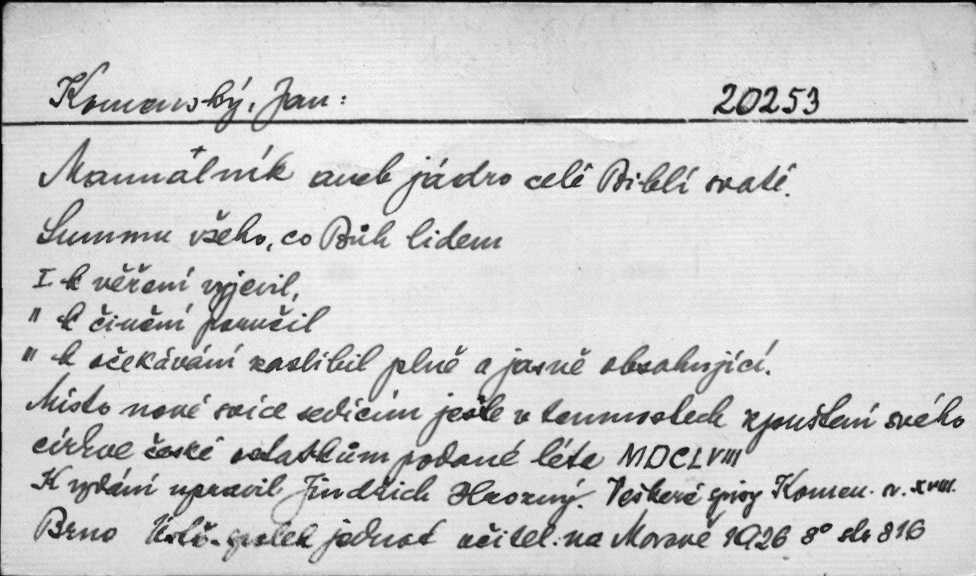 Komenský, Jan: 20253
Manuálník aneb jádro celé Biblí svaté.
Summu všeho, co Bůh lidem
I k věření vyjevil,
" k činění poručil
" k očekávání zaslíbil plně a jasně obsahující.
Místo nové svíce sedícím ještě v temnostech zpuštění svého
církve české ostatkům podané léta MDCLVIII
K vydání upravil Jindřich Hrozný. Veškeré spisy Komen. sv. XVIII.
Brno Ústř. spolek jednot učitel. na Moravě 1926 8° str 816